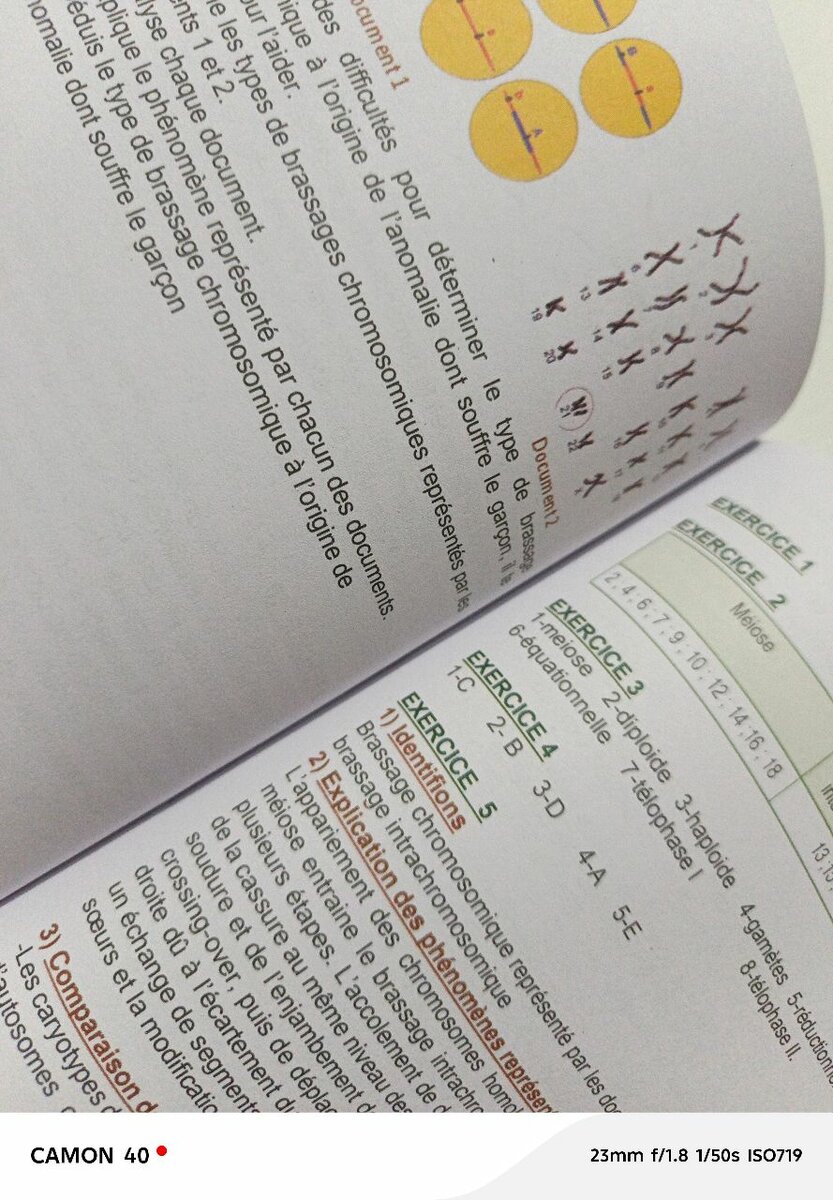 Document 1
Document 2
des difficultés pour déterminer le type de brassage
ique à l'origine de l'anomalie dont souffre le garçon, il te
our l'aider.
e les types de brassages chromosomiques représentés par les
nts 1 et 2.
lyse chaque document.
plique le phénomène représenté par chacun des documents.
éduis le type de brassage chromosomique à l'origine de
nomalie dont souffre le garçon
13
14
15
19
20
21
22
EXERCICE 1
EXERCICE 2
Méiose
2, 4 ; 6 , 7 ; 9 , 10 ; 12 , 14 ,16 , 18
EXERCICE 3
1-meiose 2-diploide 3-haploide 4-gamètes
6-équationnelle 7-télophase I 8-télophase II.
EXERCICE 4
1-C 2- B 3-D 4-A 5-E
EXERCICE 5
1) Identifions
Brassage chromosomique représenté par les
brassage intrachromosomique
2) Explication des phénomènes
L'appariement des chromosomes
méiose entraine le brassage
plusieurs étapes. L'accolement de
de la cassure au même niveau des
soudure et de l'enjambement
crossing-over, puis de
droite dû à l'écartement
un échange de
sœurs et la
3) Comparaison
-Les caryotypes
d'autosomes
CAMON 40
23mm f/1.8 1/50s ISO719